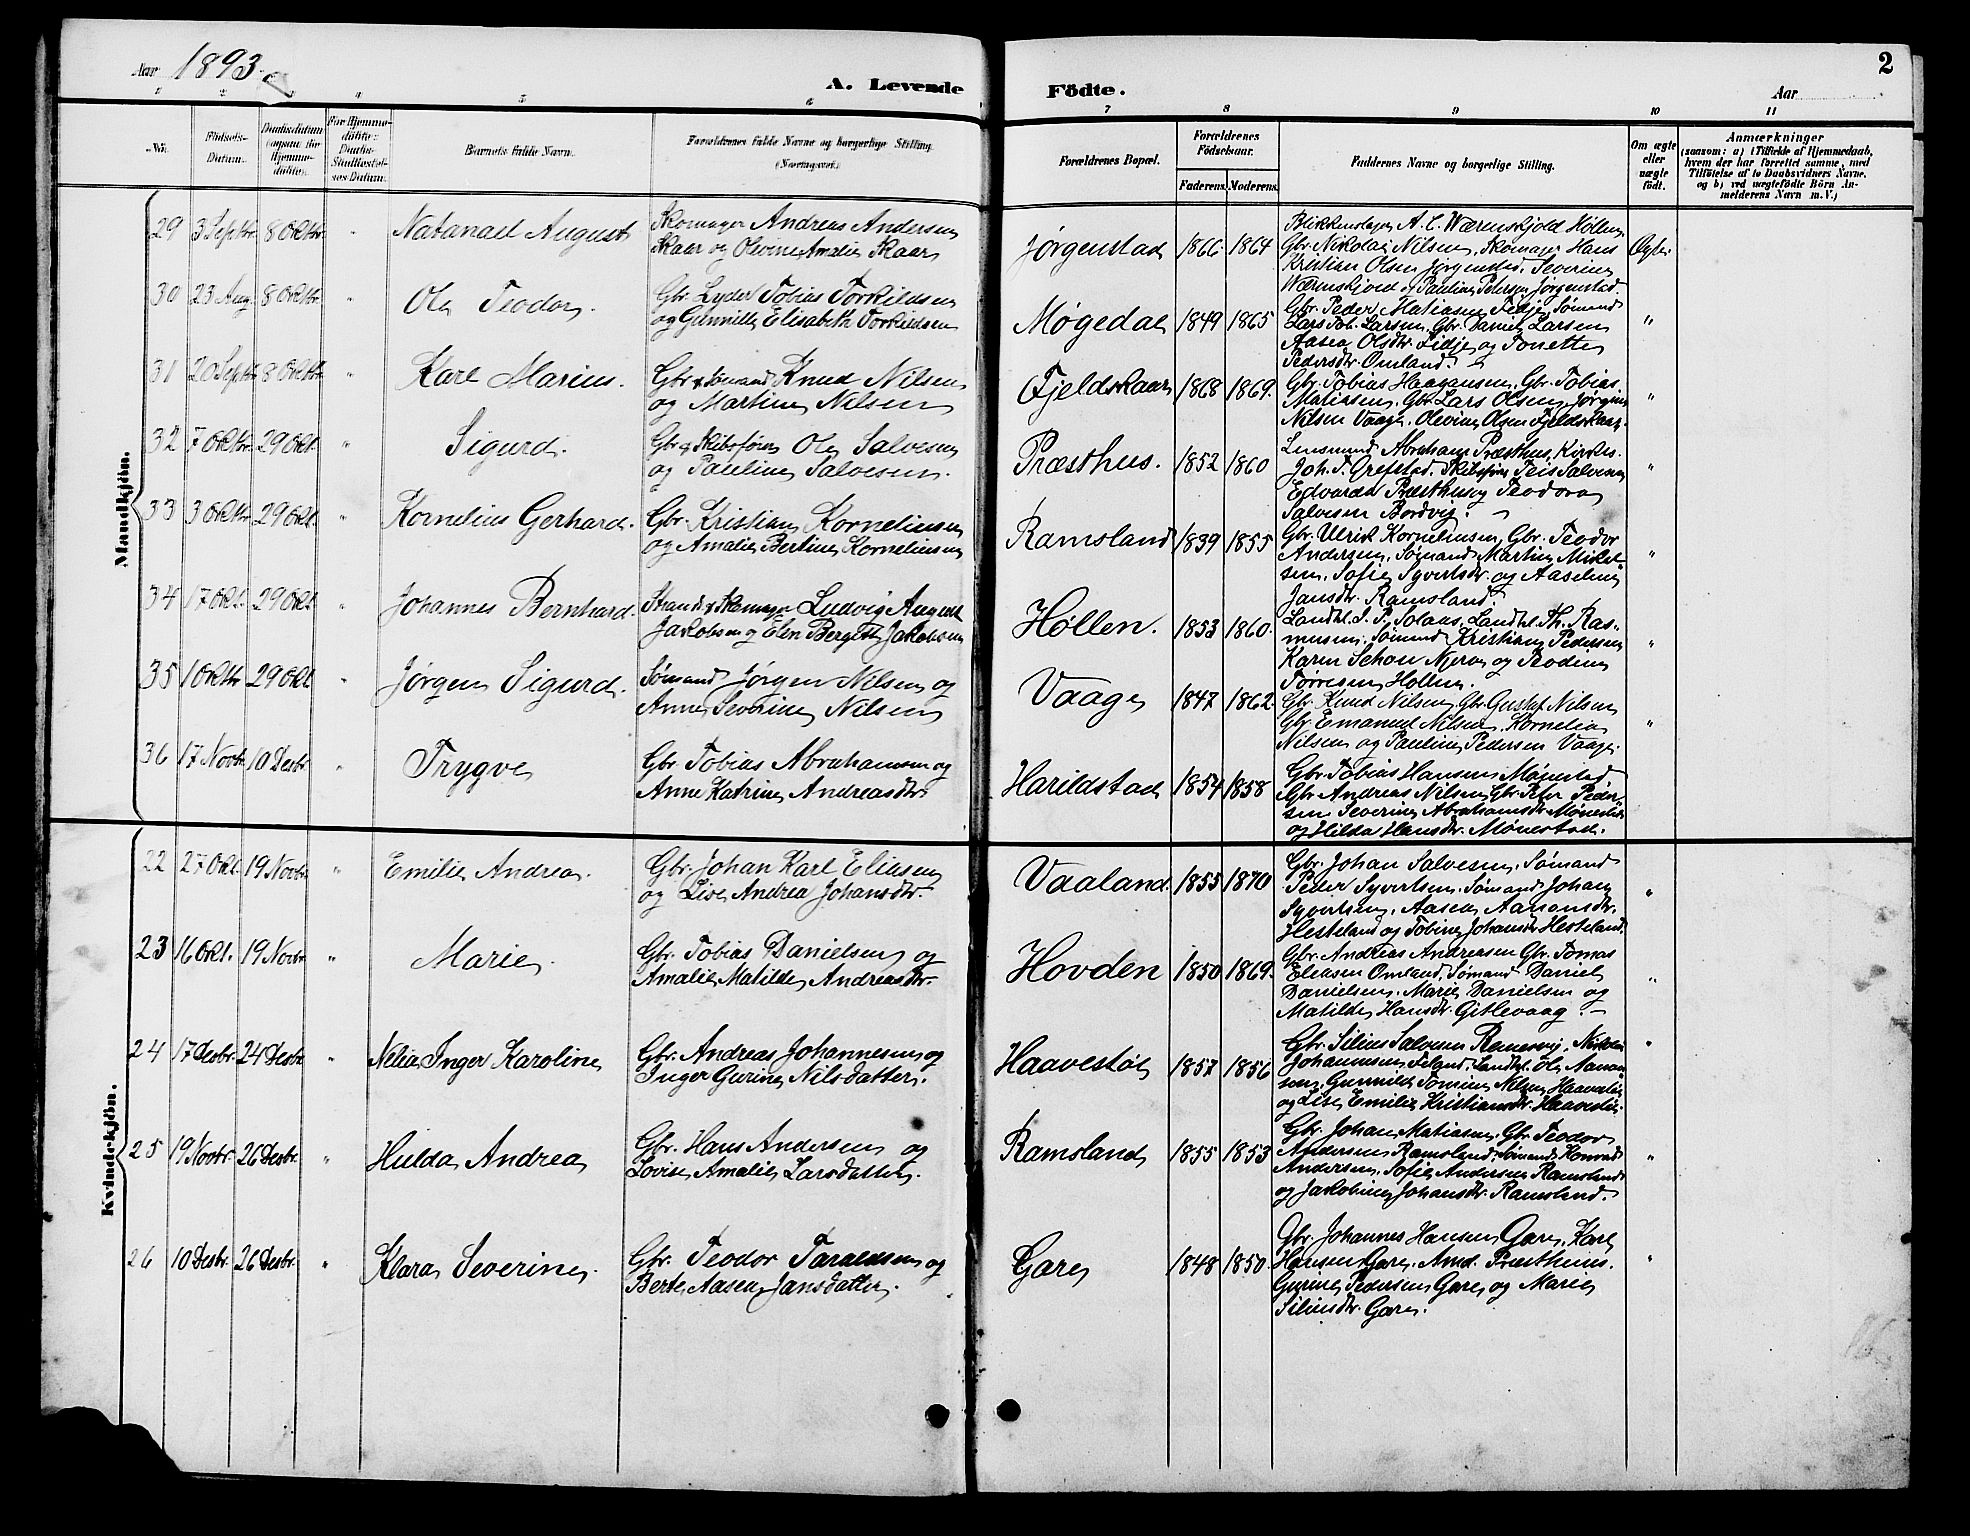 Aar 1893.
A. Levende
Födte.
Aar
2
1
2
3
4
5
6
7
8
9
10
11
No.
Fødsels-Datum.
Daabsdatum (ogsaa for Hjemmedöbte).
For Hjemmedöbte: Daabs-Stadfæstelses-Datum.
Barnets fulde Navn.
Forældrenes fulde Navne og borgerlige Stilling (Næringsvei).
Forældrenes Bopæl.
Forældrenes Födselsaar.
Faderens. Moderens.
Faddernes Navne og borgerlige Stilling.
Om ægte eller uægte födt.
Anmærkninger
(saasom: a) i Tilfælde af Hjemmedaab, hvem der har forrettet samme, med Tilføielse af to Daabsvidners Navne, og b) ved uægtefödte Börn Anmelderens Navn m. V.)
Mandkjön.
29 3 Septbr 8 Oktbr " Natanael August
Skomager Andreas Andersen
Skaar og Olvine Amalie Skaar
Jørgenstad 1866 1864
Blikkenslager A. C. Wærenskjold Høllen,
Gbr. Nikolai Nilsen, Skomager Hans
Kristian Olsen Jørgenstad. Severine
Wærenskjold og Pauline Petersen Jørgenstad.
Ægte
30 23 Aug 8 Oktbr. " Ole Teodor.
Gbr. Lyder Tobias Torkildsen
og Gunnille Elisabeth Torkildsen
Møgedal 1849 1865
Gbr. Peder Matiasen Tidje, Sømand
Lars Joh. Larsen, Gbr. Daniel Larsen
Aasea Olsdtr. Lidje og Tonette
Pedersdtr. Omland.
"
31 20 Septbr 8 Oktbr " Karl Marius.
Gbr & Sømand Knud Nilsen
og Martine Nilsen
Fjeldskaar 1868 1869.
Gbr. Tobias Haagansen, Gbr. Tobias
Matiasen, Gbr. Lars Olsen, Jørgine
Nilsen Vaage. Olevine Olsen Fjeldskaar.
"
32 7 Oktbr 29 Okt. " Sigurd.
Gbr & Skibsfører Ole Salvesen
og Pauline Salvesen.
Præsthus. 1852 1860
Lensmand Abrahams Præsthus, Kirkes.
Joh. T. Grefstad. Skibsfører Teis Salvesen
Edvarda Præsthus og Teodora
Salvesen Bordvig.
"
33 3 Oktbr 29 Okt. " Kornelius Gerhard.
Gbr. Kristian Korneliusen
og Amalie Bertine Korneliusen
Ramsland 1839 1855
Gbr. Ulrik Korneliusen, Gbr. Teodor
Andersen, Sømand Martin Mikal-
sen, Sofie Syvertsdtr. og Aaseline
Jansdtr. Ramsland
"
34 17 Okt. 29 Okt " Johannes Bernhard.
Strands. & Skomager Ludvig August
Jakobsen og Elen Bergette Jakobsen
Høllen. 1853 1860.
Landhl. S. P. Solaas, Landhl. Th. Ras-
musen, Sømand Kristian Pedersen
Karen Schou Njerve og Teodine
Torresen Hollen.
"
35 1 Oktbr 29 Okt " Jørgen Sigurd.
Sømand Jørgen Nilsen og
Anne Severine Nilsen
Vaage 1847 1862.
Gbr. Knud Nilsen, Gbr. Gustaf Nilsen
Gbr. Emanuel Nilsen, Kornelia
Nilsen og Pauline Pedersen Vaage.
"
36 17 Novbr 10 Desbr. " Trygve
Gbr. Tobias Abrahamsen og
Anne Katrine Andreasdtr
Harildstad 1854 1858
Gbr. Tobias Hansen Mønestad
Gbr. Andreas Nilsen, Gbr. Peter Peder-
sen Severine Abrahamsdtr. Mønestad
og Hilda Hansdtr. Mønestad.
Kvindekjön.
22 27 Okt. 19 Novbr " Emilie Andrea.
Gbr. Johan Karl Eliasen
og Lise Andrea Johansdtr.
Vaaland. 1855 1870
Gbr. Johan Salvesen. Sømand
Peder Syvertsen. Sømand Johan
Syvertsen. Aasea Aanonsdtr.
Hesteland og Tobine Johansdtr Hesteland.
"
23 16 Okt. 19 Novbr " Marie.
Gbr. Tobias Danielsen og
Amalie Matilde Andreasdtr.
Hovden 1850 1869.
Gbr. Andreas Andreasen Gbr. Tomas
Eliasen Omland, Sømand Daniel
Danielsen. Marie Danielsen og
Matilde Hansdtr. Gitlevaag.
"
24 17 Desbr. 24 Desbr " Nelia Inger Karoline
Gbr. Andreas Johannesen og
Inger Gurine Nilsdatter.
Haavestøl 1857 1856
Gbr. Silius Salvesen Ramsvig, Nikolai
Johannesen Feland. Landhl. Ole Aanon-
sen, Gunnild Tomine Nilsen Haavestøl
og Lise Emilie Kristiansdtr. Haavestøl.
"
25 19 Novbr. 26 Desbr. " Hulda Andrea
Gbr. Hans Andersen og
Lovise Amalie Larsdatter.
Ramsland 1855 1853
Gbr. Johan Matiasen. Gbr. Teodor
Andersen Ramsland, Sømand Konrad
Andersen, Sofie Andersen Ramsland
og Jakobine Johansdtr. Ramsland.
"
26 10 Desbr. 26 Desbr. " Klara Severine.
Gbr. Teodor Taraldsen og
Berte Aasea Jansdatter.
Gare 1848 1850.
Gbr. Johannes Hansen Gare, Karl
Hansen Gare. Amd. Præsthus.
Gurine Pedersen Gare og Marie
Siliusdtr. Gare.
"